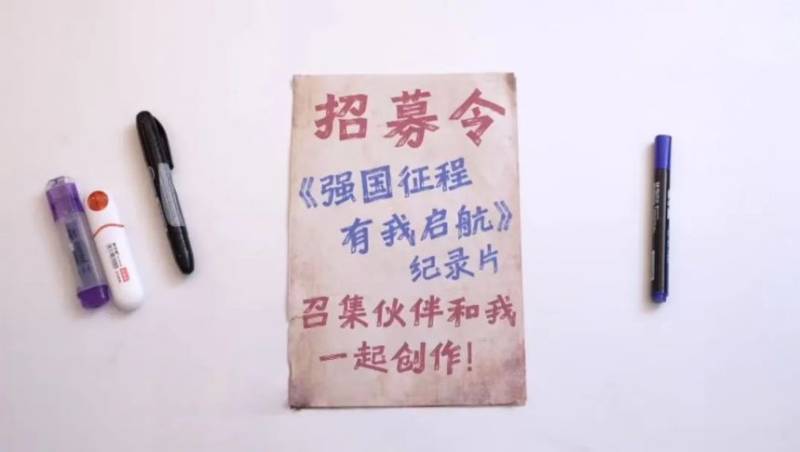 招募令
《强国征程
有我启航》
纪录片
召集伙伴和我
一起创作！